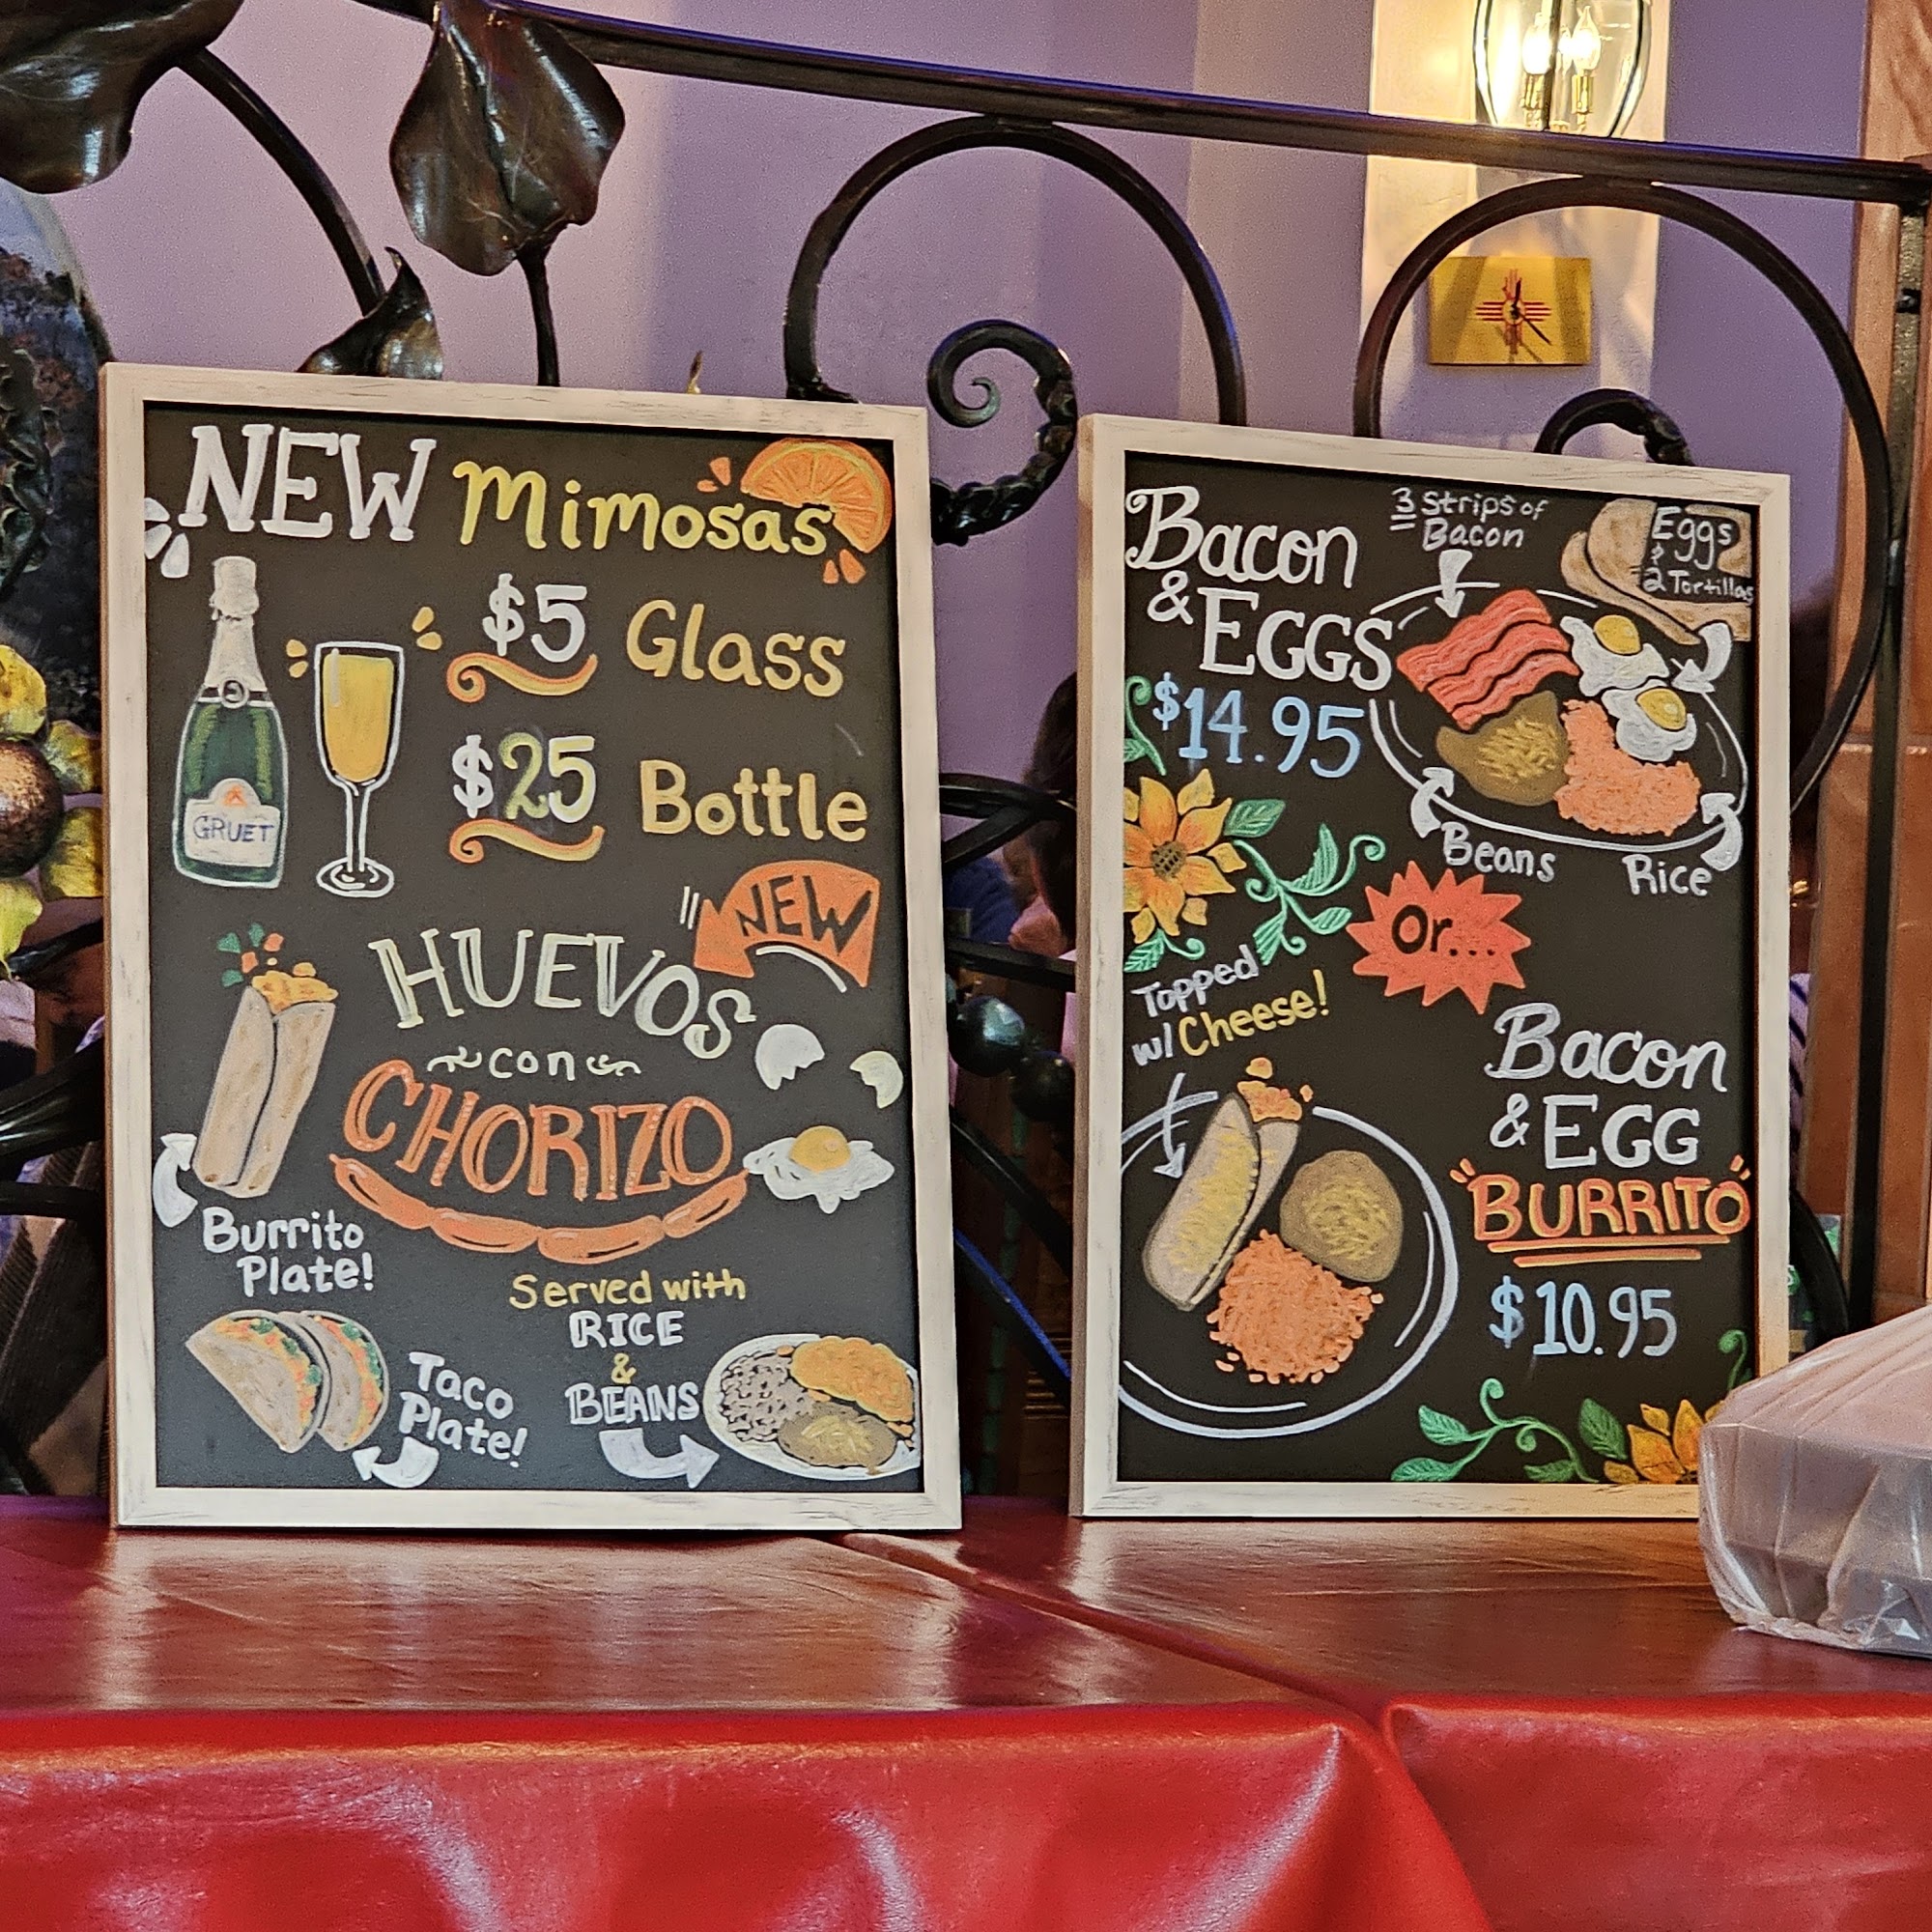 NEW Mimosas
$5 Glass
$25 Bottle
GRUET
NEW
HUEVOS
con
CHORIZO
Burrito
Plate!
Served with
RICE
&
BEANS
Taco
Plate!
Bacon
& EGGS
$14.95
3 Strips of
Bacon
Eggs
&
2 Tortillas
Beans
Rice
Or...
Topped
w/ Cheese!
Bacon
& EGG
BURRITO
$10.95